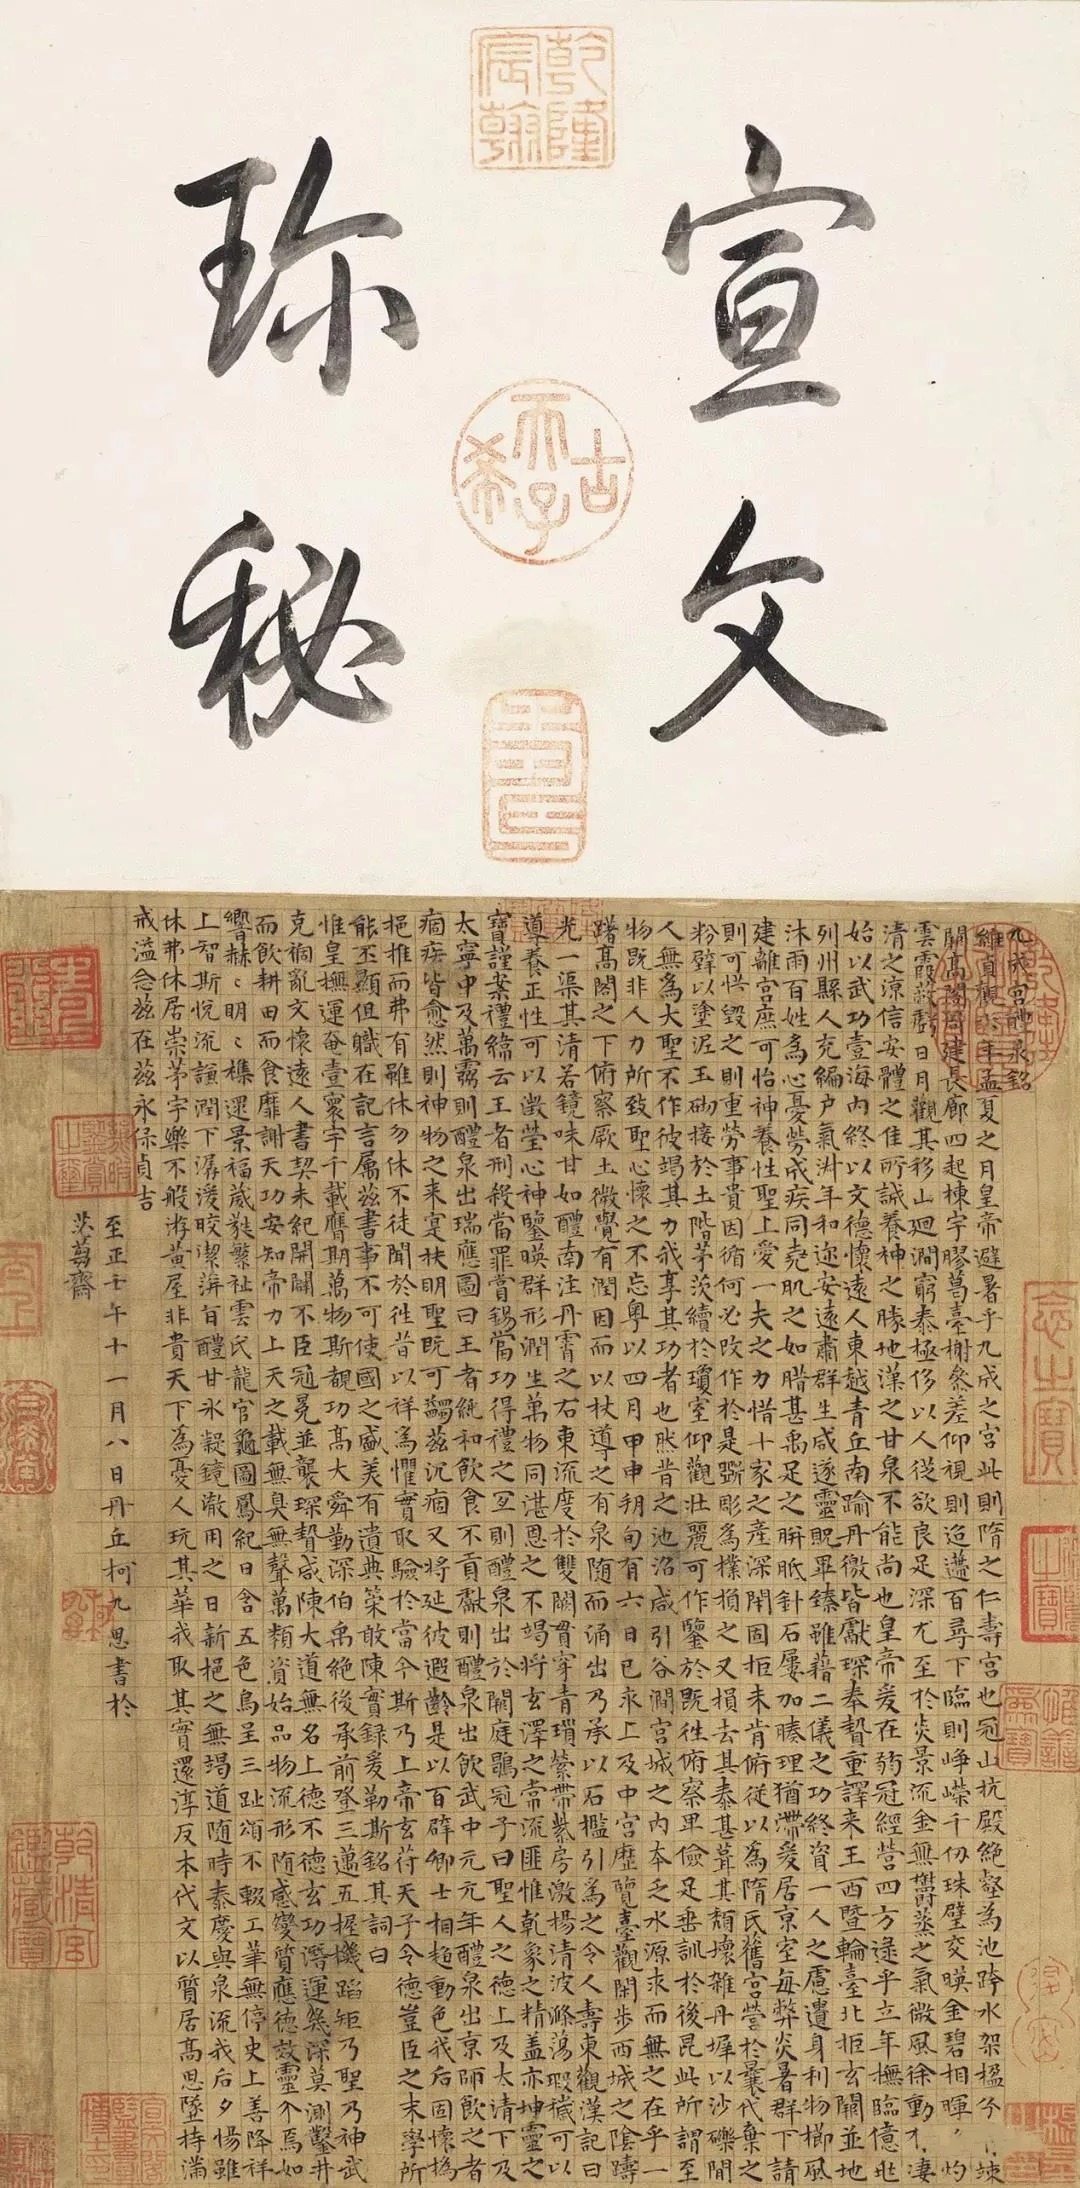 乾隆宸翰
宣文
珎秘
古希天子
九成宮醴泉銘
維貞觀六年孟夏之月皇帝避暑乎九成之宮此則隋之仁壽宮也冠山抗殿絕壑為池跨水架楹分〃竦
闕高閣周建長廊四起棟宇膠葛臺榭參差仰視則迢遰百尋下臨則崢嶸千仞珠璧交暎金碧相暉〃灼
雲霞蔽虧日月觀其移山迴澗窮泰極侈以人從欲良足深尤至於炎景流金無鬱蒸之氣微風徐動有凄
清之涼信安體之佳所誠養神之勝地漢之甘泉不能尚也皇帝爰在弱冠經營四方逮乎立年撫臨億兆
始以武功壹海內終以文德懷遠人東越青丘南踰丹徼皆獻琛奉贄重譯来王西暨輪臺北拒玄闕並地
列州縣人充編戶氣淑年和迩安遠肅群生咸遂靈貺畢臻雖藉二儀之功終資一人之慮遺身利物櫛風
沐雨百姓為心憂勞成疾同堯肌之如腊甚禹足之胼胝針石屢加腠理猶滯爰居京室每弊炎暑群下請
建離宮庶可怡神養性聖上愛一夫之力惜十家之產深閉固拒未肯俯從以為隋氏舊宮營於曩代棄之
則可惜毀之則重勞事貴因循何必改作於是斲彫為樸損之又損去其泰甚葺其頹壞雜丹墀以沙礫間
粉壁以塗泥玉砌接於土階茅茨續於瓊室仰觀壯麗可作鑒於既往俯察卑儉足垂訓於後昆此所謂至
人無為大聖不作彼竭其力我享其功者也然昔之池沼咸引谷澗宮城之內本乏水源求而無之在乎一
物既非人力所致聖心懷之不忘粵以四月甲申朔旬有六日己亥上及中宮歷覽臺觀閑步西城之陰躊
躇高閣之下俯察厥土微覺有潤因而以杖導之有泉随而涌出乃承以石檻引為之令人壽東觀漢記曰
光一渠其清若鏡味甘如醴南注丹霄之右東流度於雙闕貫穿青瑣縈帶紫房激揚清波滌蕩瑕穢可以
導養正性可以澂瑩心神鑒暎群形潤生萬物同湛恩之不竭將玄澤之常流匪惟乾象之精盖亦坤靈之
寶謹案禮緯云王者刑殺當罪賞錫當功得禮之宜則醴泉出於闕庭鶡冠子曰聖人之德上及太清下及
太寧中及萬靈則醴泉出瑞應圖曰王者純和飲食不貢獻則醴泉出飲武中元元年醴泉出京師飲之者
痼疾皆愈然則神物之来寔扶明聖既可蠲茲沉痼又將延彼遐齡是以百辟卿士相趨動色我后固懷撝
挹推而弗有雖休勿休不徒聞於往昔以祥為懼實取驗於當今斯乃上帝玄符天子令德豈臣之末學所
能丕顯但職在記言屬茲書事不可使國之盛美有遺典策敢陳實録爰勒斯銘其詞曰
惟皇撫運奄壹寰宇千載膺期萬物斯覩功高大舜勤深伯禹絕後承前登三邁五握機蹈矩乃聖乃神武
克禍亂文懷遠人書契未紀開闢不臣冠冕並襲琛贄咸陳大道無名上德不德玄功潛運幾深莫測鑿井
而飲耕田而食靡謝天功安知帝力上天之載無臭無聲萬類資始品物流形随感變質應德效靈介焉如
響赫〻明〻雜遝景福葳蕤繁祉雲氏龍官龜圖鳳紀日含五色烏呈三趾頌不輟工筆無停史上善降祥
上智斯悅流謙潤下潺湲皎潔蓱旨醴甘冰凝鏡澈用之日新挹之無竭道随時泰慶與泉流我后夕惕雖
休弗休居崇茅宇樂不般游黃屋非貴天下為憂人玩其華我取其實還淳反本代文以質居高思墜持滿
戒溢念茲在茲永保貞吉
至正壬午十一月八日丹丘柯九思書於
蒭齋
乾清宮鑒藏寶